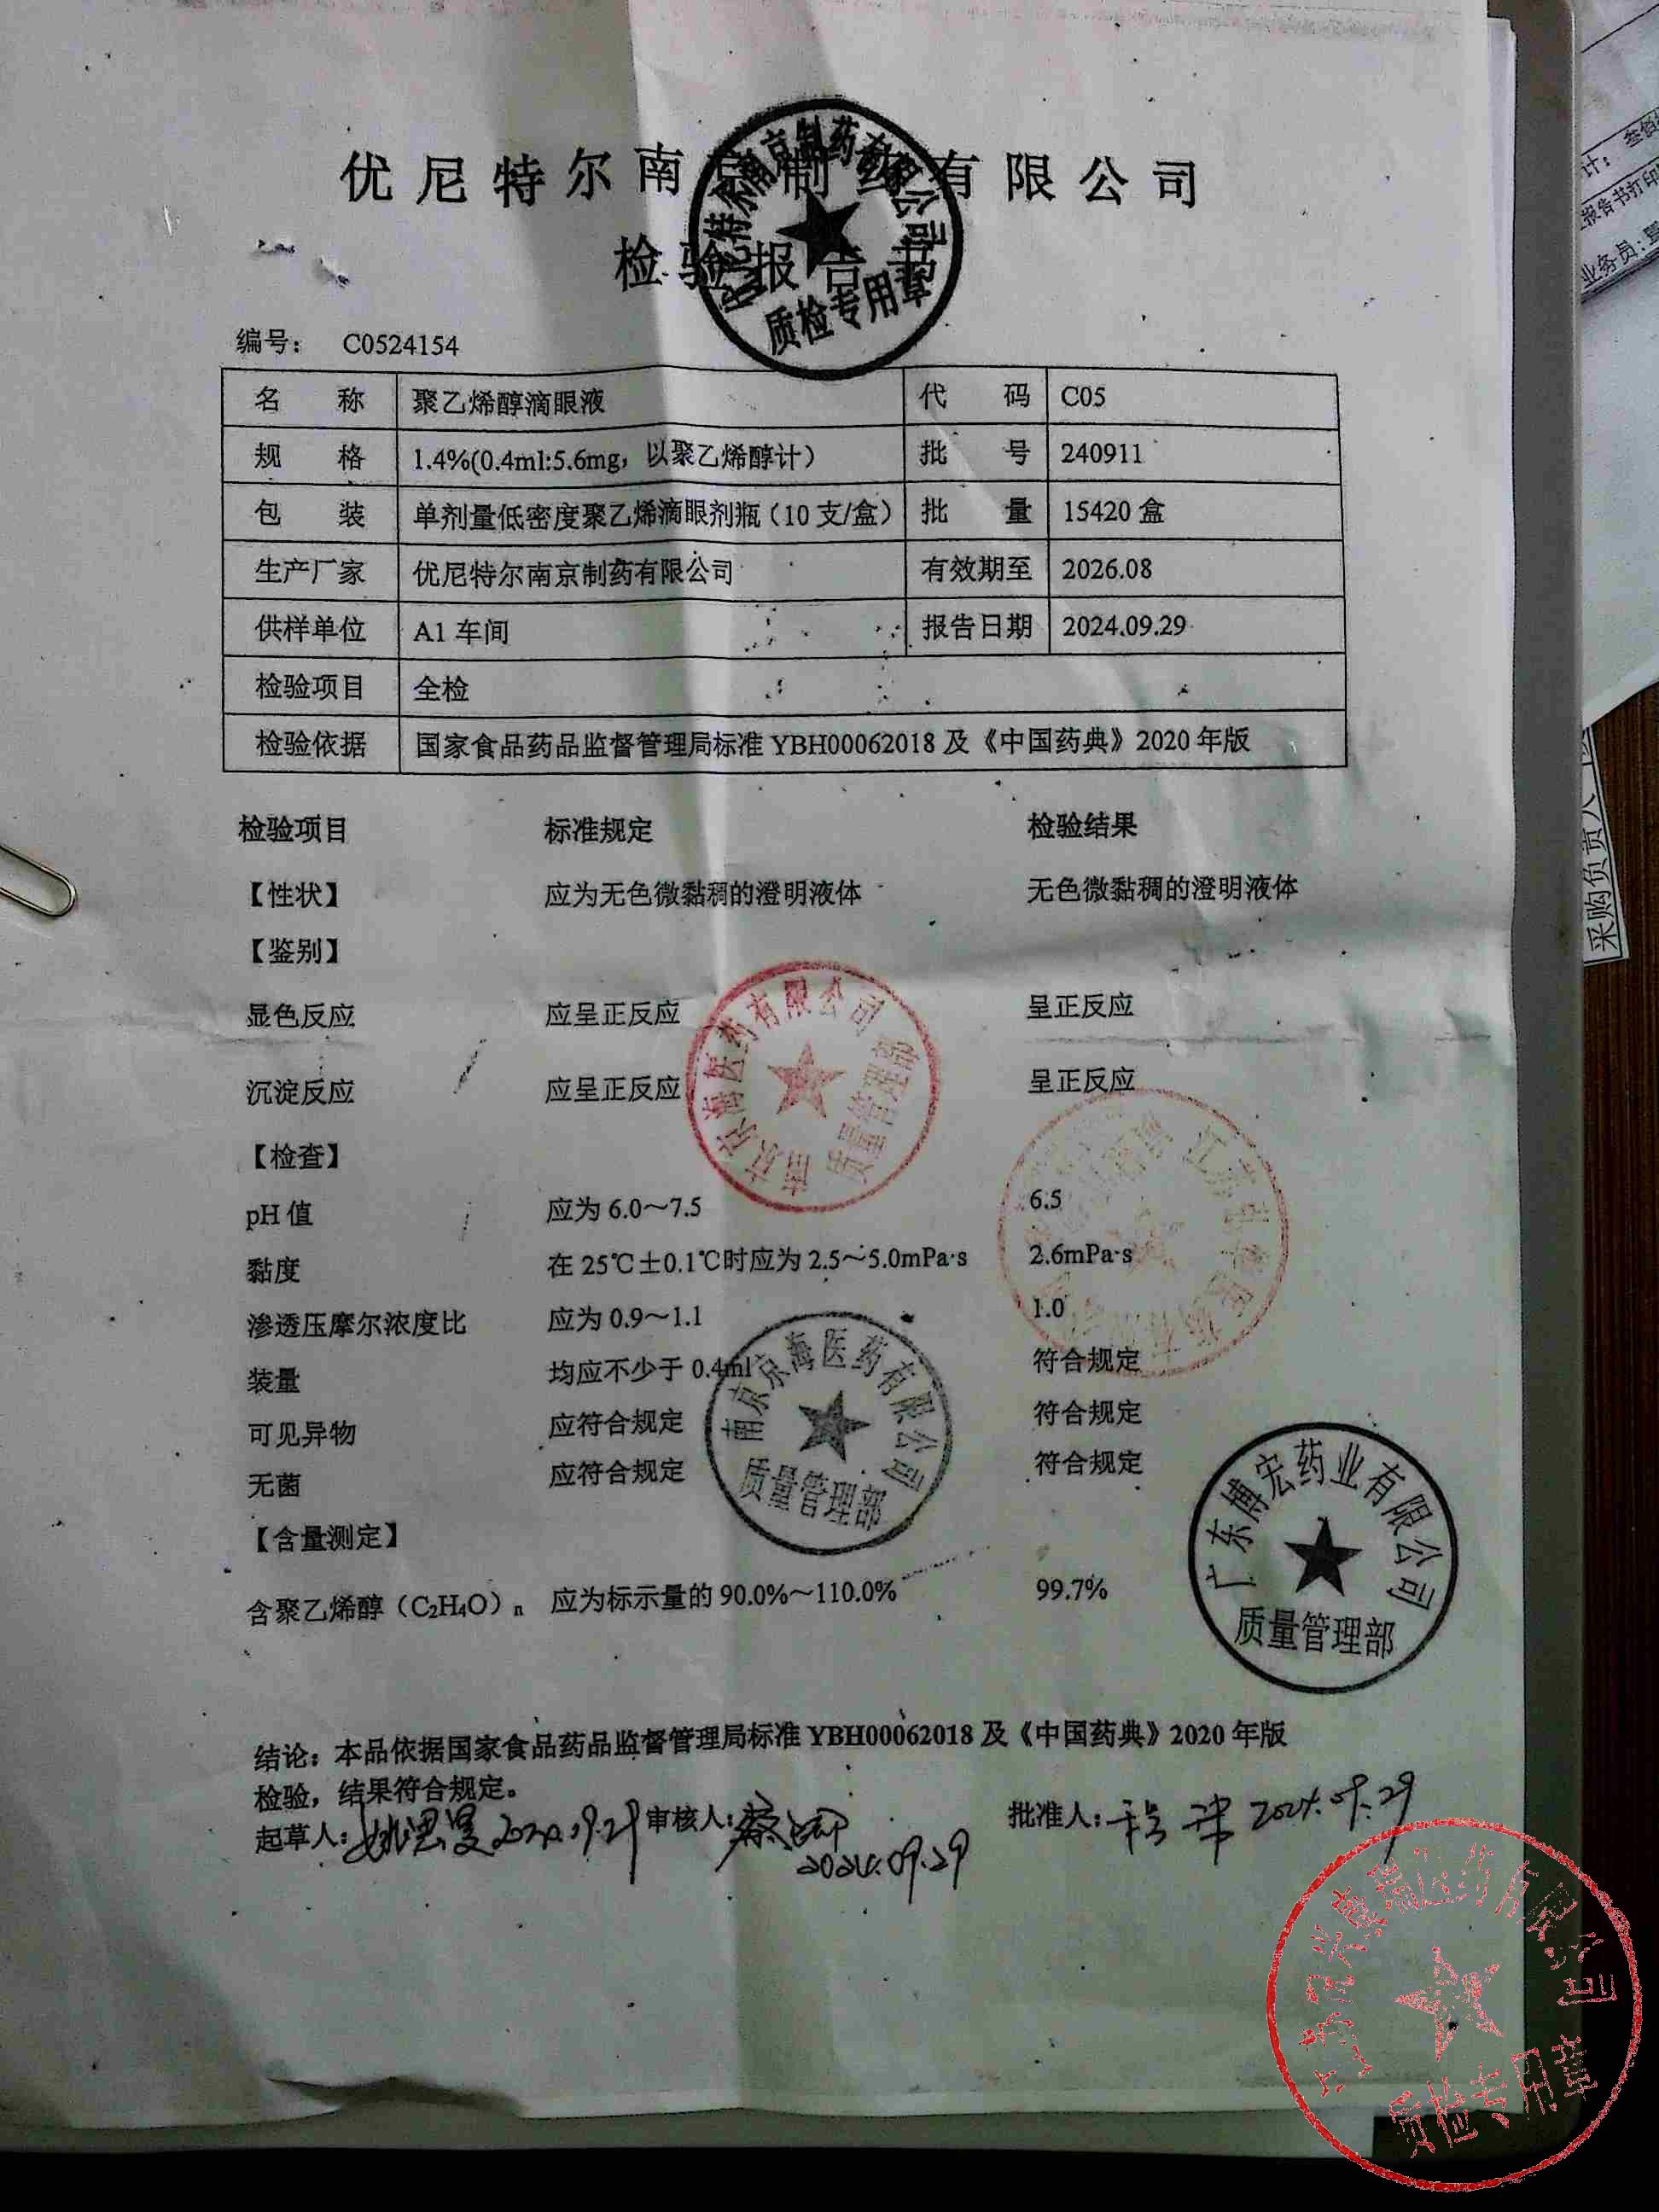 优尼特尔南京制药有限公司
检验报告书
质检专用章
编号： C0524154
名 称 聚乙烯醇滴眼液 代 码 C05
规 格 1.4%(0.4ml:5.6mg，以聚乙烯醇计） 批 号 240911
包 装 单剂量低密度聚乙烯滴眼剂瓶（10支/盒） 批 量 15420盒
生产厂家 优尼特尔南京制药有限公司 有效期至 2026.08
供样单位 A1车间 报告日期 2024.09.29
检验项目 全检
检验依据 国家食品药品监督管理局标准YBH00062018及《中国药典》2020年版
检验项目 标准规定 检验结果
【性状】 应为无色微黏稠的澄明液体 无色微黏稠的澄明液体
【鉴别】
显色反应 应呈正反应 呈正反应
沉淀反应 应呈正反应 呈正反应
南京京海医药有限公司
质量管理部
【检查】
pH值 应为6.0～7.5 6.5
黏度 在25℃±0.1℃时应为2.5～5.0mPa·s 2.6mPa·s
渗透压摩尔浓度比 应为0.9～1.1 1.0
装量 均应不少于0.4ml 符合规定
可见异物 应符合规定 符合规定
无菌 应符合规定 符合规定
南京京海医药有限公司
质量管理部
【含量测定】
含聚乙烯醇（C₂H₄O）n 应为标示量的90.0%～110.0% 99.7%
广东博宏药业有限公司
质量管理部
结论：本品依据国家食品药品监督管理局标准YBH00062018及《中国药典》2020年版
检验，结果符合规定。
起草人： 审核人： 批准人： 2024.09.29
2024.09.29
质检专用章
计：叁佰
报告书打印
业务员：
采购负责人